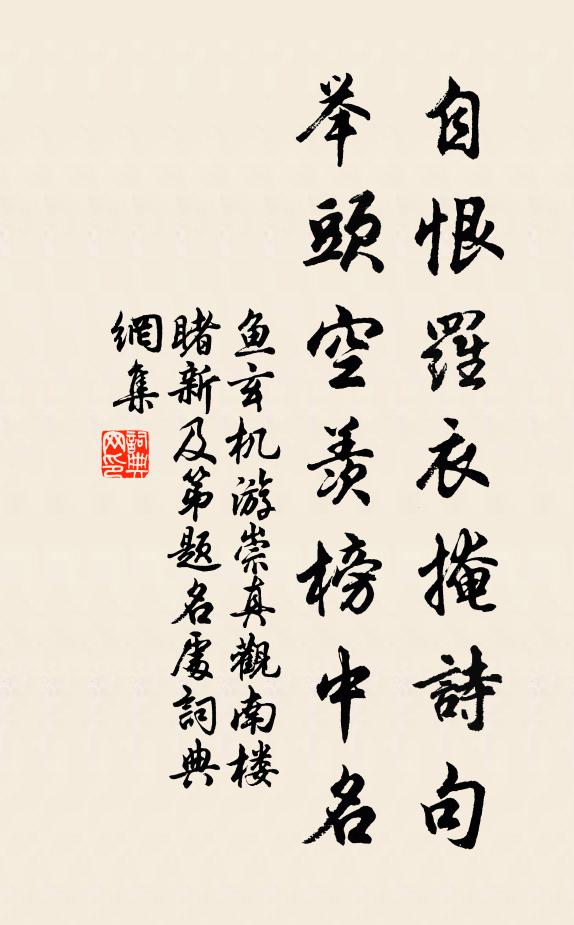 自恨羅衣掩詩句
举頭空羨榜中名
鱼玄机游崇真觀南楼
睹新及第题名處詞典
網集
詞典
网印